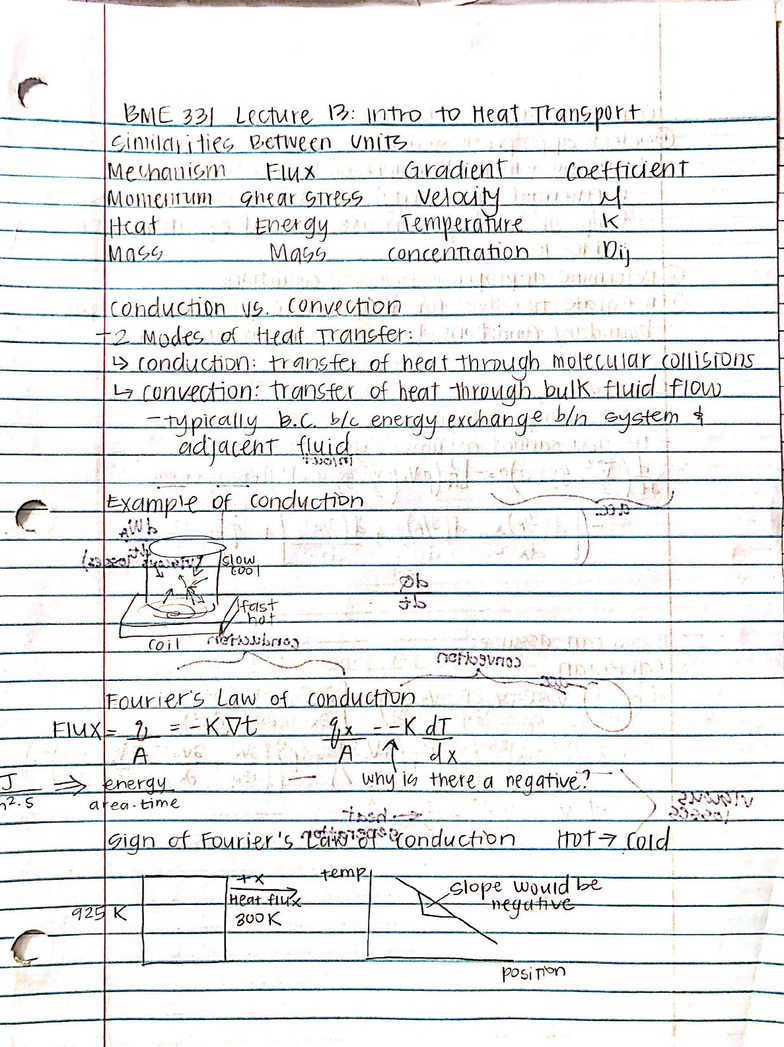 BME 331 Lecture 13: Intro to Heat Transport
Similarities Between Units
Mechanism Flux Gradient Coefficient
Momentum Shear Stress Velocity M
Heat Energy Temperature K
Mass Mass Concentration Dij
Conduction vs. Convection
- 2 Modes of Heat Transfer:
↳ conduction: transfer of heat through molecular collisions
↳ convection: transfer of heat through bulk fluid flow
- typically b.c. b/c energy exchange b/n system &
adjacent fluid
Example of conduction
slow
cool
fast
hot
coil
Fourier's Law of conduction
Flux = q/A = -K∇t qx/A = -K dT/dx
J/m²·s ⇒ energy/area·time why is there a negative?
Sign of Fourier's Law of conduction HOT → Cold
+x
temp
925 K
Heat flux
300K
slope would be
negative
position